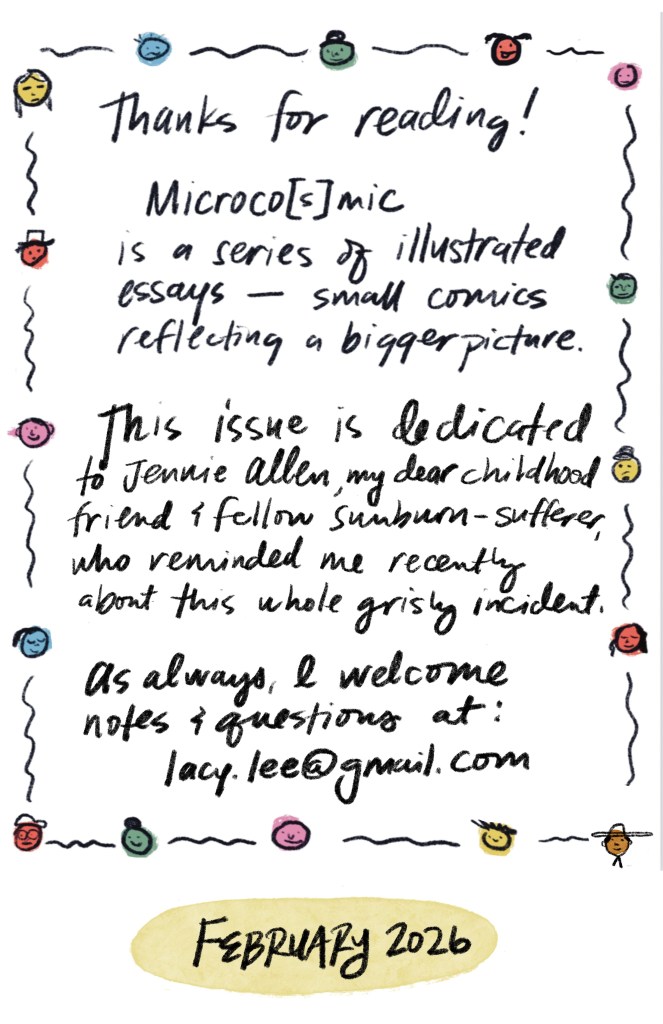 Thanks for reading!
Microco[s]mic
is a series of illustrated
essays — small comics
reflecting a bigger picture.
This issue is dedicated
to Jennie Allen, my dear childhood
friend & fellow sunburn-sufferer,
who reminded me recently
about this whole grisly incident.
As always, I welcome
notes & questions at:
lacy.lee@gmail.com
FEBRUARY 2026